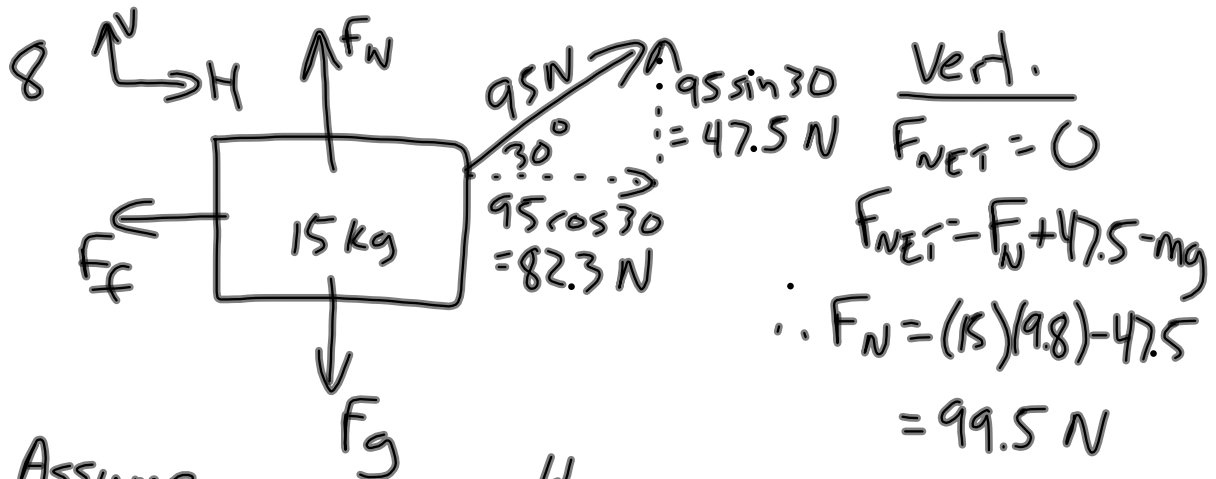 8
V
H
F_N
95N
30°
95 sin 30
= 47.5 N
95 cos 30
= 82.3 N
F_f
15 kg
F_g
Vert.
F_NET = 0
F_NET = F_N + 47.5 - mg
∴ F_N = (15)(9.8) - 47.5
= 99.5 N